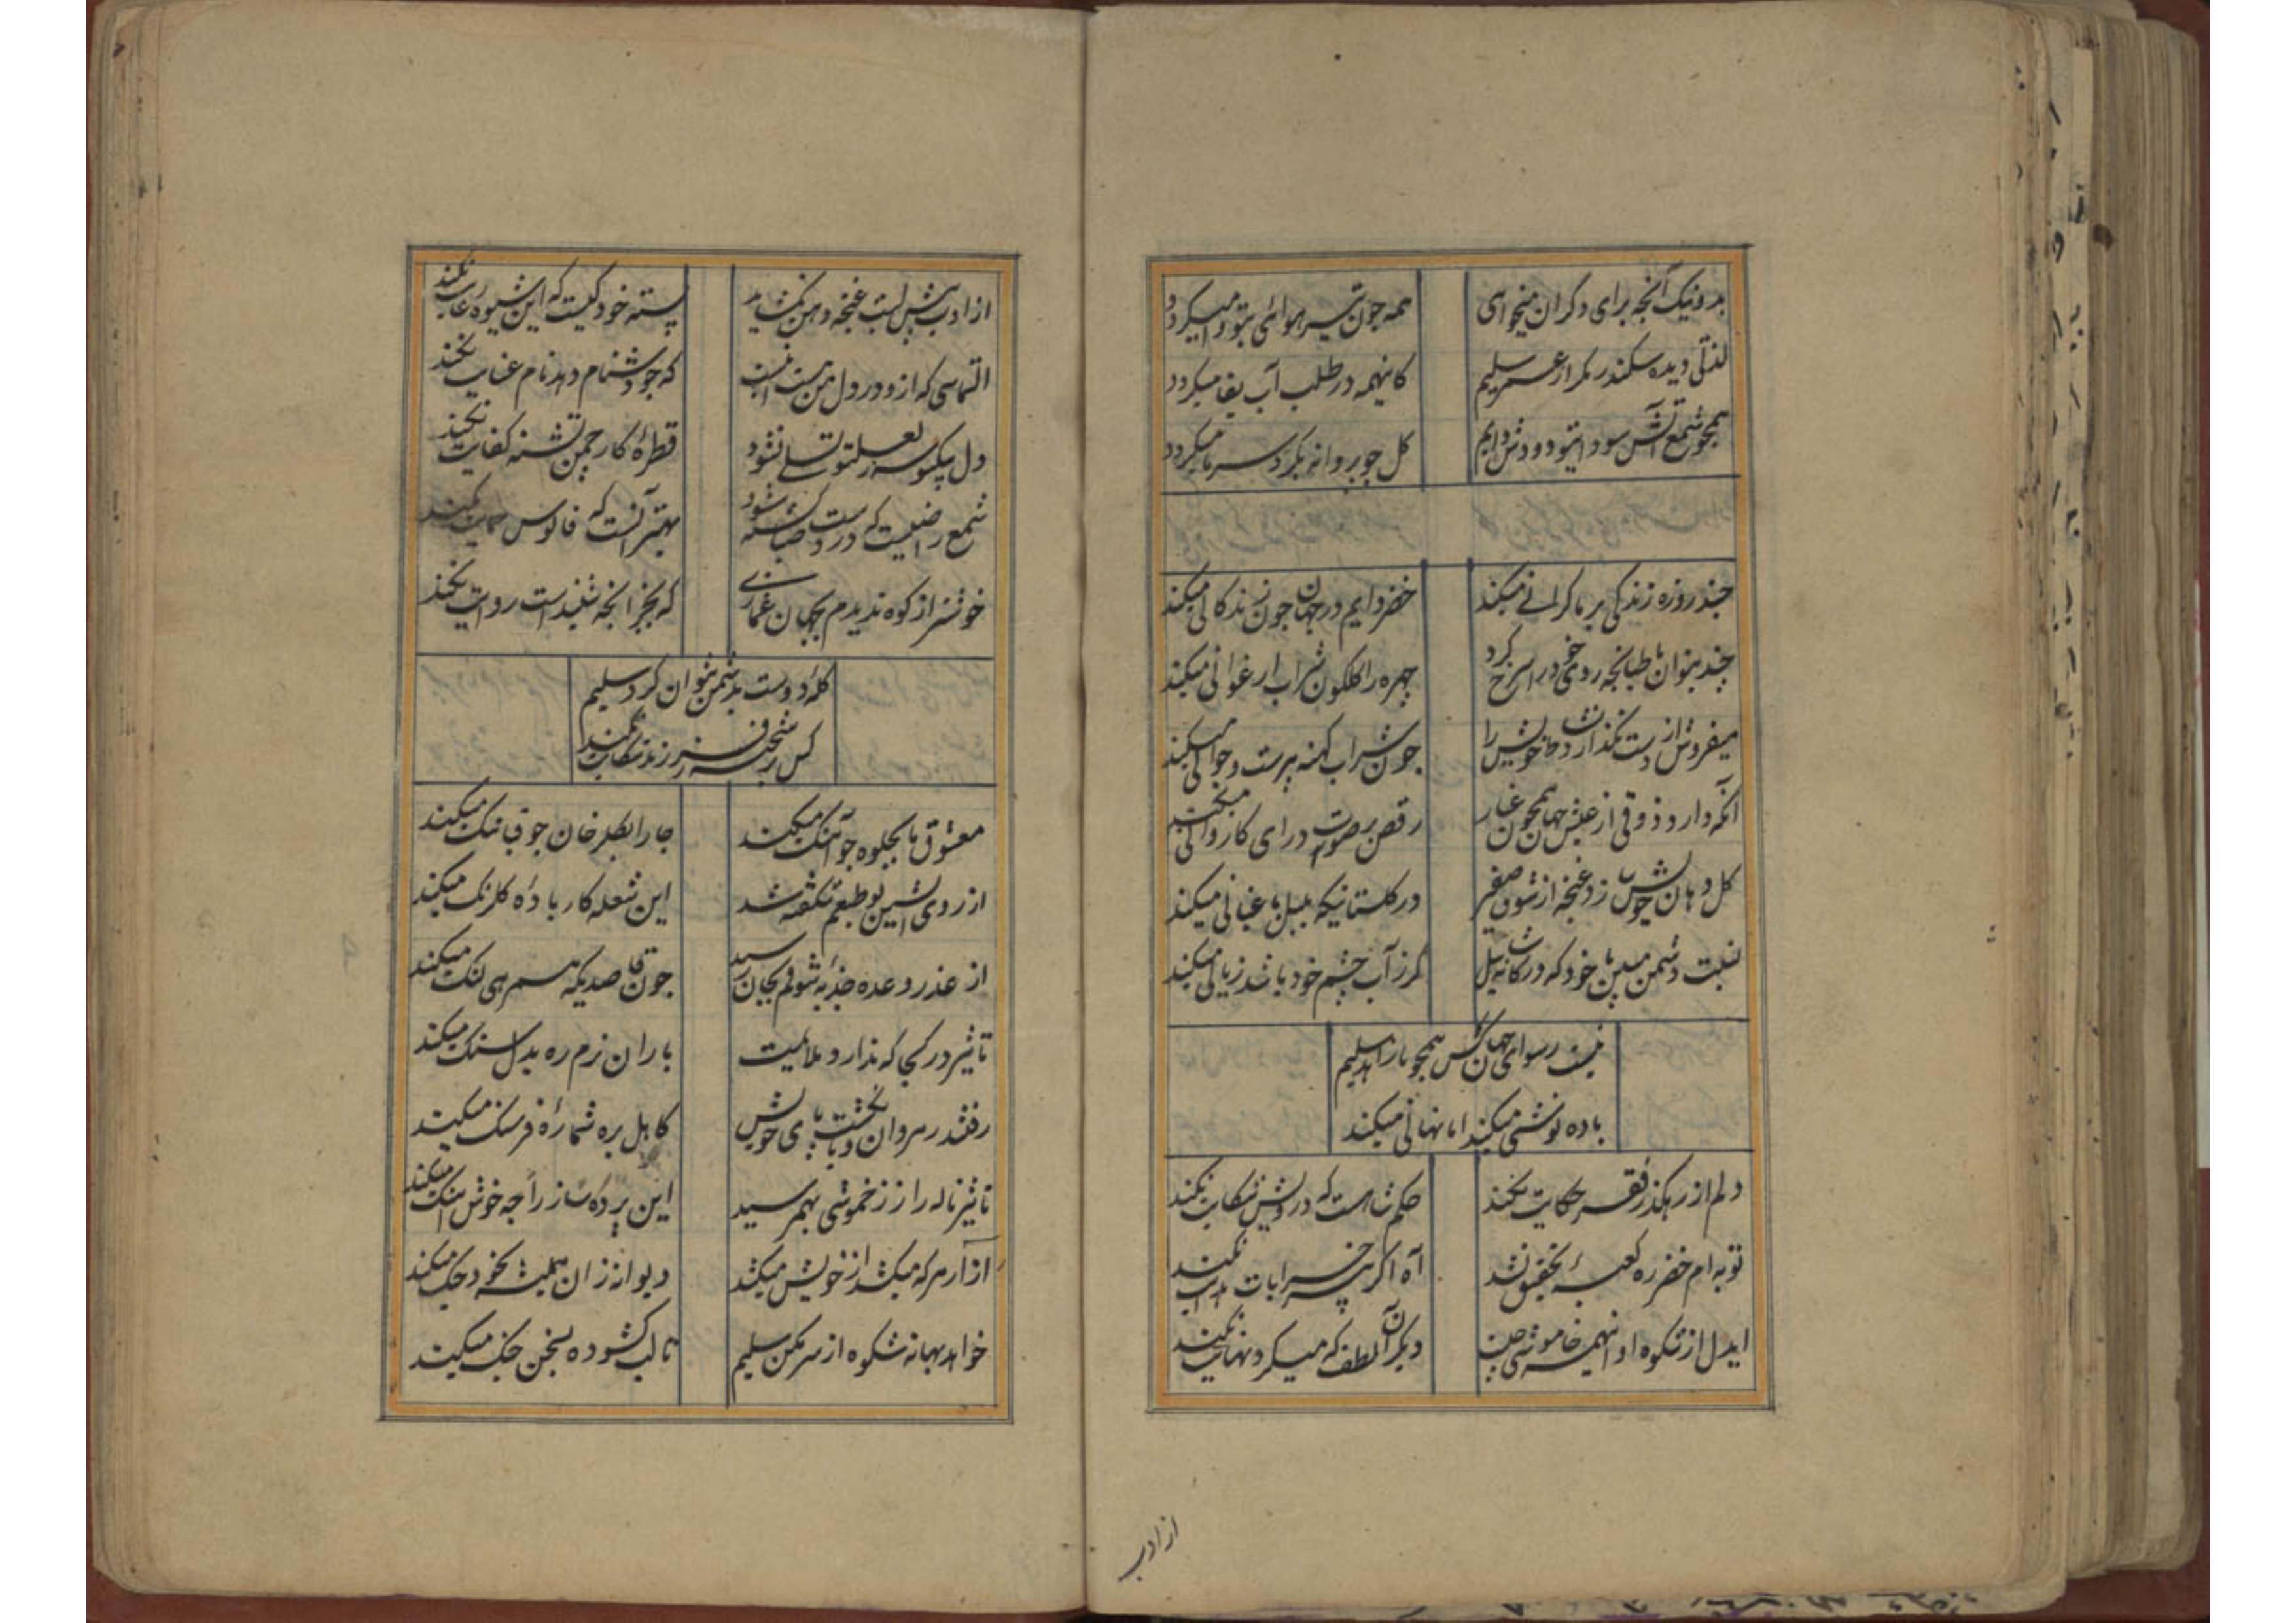 بد و نیک آنچه برای دگران میخواهی
همه چون تیر هوائی بتو وا میکردد
لذتی دیده سکندر مکر از عمر سلیم
کاینهمه در طلب آب بقا میکردد
همچو شمع آتش سودا تیو دود ش دایم
کل چو پروانه بکرد سر ما میکردد
چند روزه زندکی بر ما کرانی میکند
خضر دایم در جهان چون زندکانی میکند
چند بتوان با طپانچه روی خود را سرخ کرد
چهره را کلکون شراب ارغوانی میکند
میفروش از دست نکذارد نشاط خویش را
چون شراب کهنه پیرست و جوانی میکند
آنکه دارد ذوقی از عیش جهان همچون غبار
رقص بر صوت درای کاروانی میکند
کل دهان خویش زد غنچه از شوق صفیر
در کلستانیکه بلبل باغبانی میکند
نسبت دشمن مبین با خود که در کاشانه سیل
کرز آب چشم خود باشد زیانی میکند
نیست رسوای جهان کس همچو ما زاهد سلیم
باده نوشی میکند اما نهانی میکند
دلم از رهکذر فقر حکایت نکند
حکم شاهست که درویش شکایت نکند
توبه ام خضر ره کعبهٔ تحقیق نشد
آه اکر پیر خرابات هدایت نکند
ایدل از شکوه او اینهمه خاموشی چیست
دیکر آن لطف که میکرد نهایت نکند
از ادب
از ادب پیش لبت غنچه دهن نکشاید
پسته خود کیست که این شیوه رعایت نکند
التماسی که ازو در دل من هست اینست
که چو دشنام دهد نام عنایت نکند
دل بیکبوسه ز لعل تو تسلی نشود
قطرهٔ کار چمن تشنه کفایت نکند
شمع را ضعیست که در دست صبا کشته شود
بهتر آنست که فانوس حمایت نکند
خوشتر از کوه ندیدم بجهان غمازی
که بجز آنچه شنیدست روایت نکند
کلهٔ دوست بدشمن نتوان کرد سلیم
کس بر شحنه ز فرزند شکایت نکند
معشوق ما بجلوه چو آهنک میکند
جا را بکلرخان چو قبا تنک میکند
از روی آتشین تو طبعم شکفته شد
این شعله کار بادهٔ کلرنک میکند
از عذر وعده جذبهٔ شوقم بجان رسید
چون قاصدیکه همرهی لنک میکند
تاثیر در کجا که ندارد ملایمت
باران نرم ره بدل سنک میکند
رفتند رهروان و بانکشت پای خویش
کاهل بره شمارهٔ فرسنک میکند
تاثیر ناله را ز خموشی بهم رسید
این پرده ساز را چه خوش آهنک میکند
آزار هر که میکشد از خویش میکشد
دیوانه زان همیشه بخود جنک میکند
خواهد بهانه شکوه از سر مکن سلیم
تا لب کشوده بسخن جنک میکند